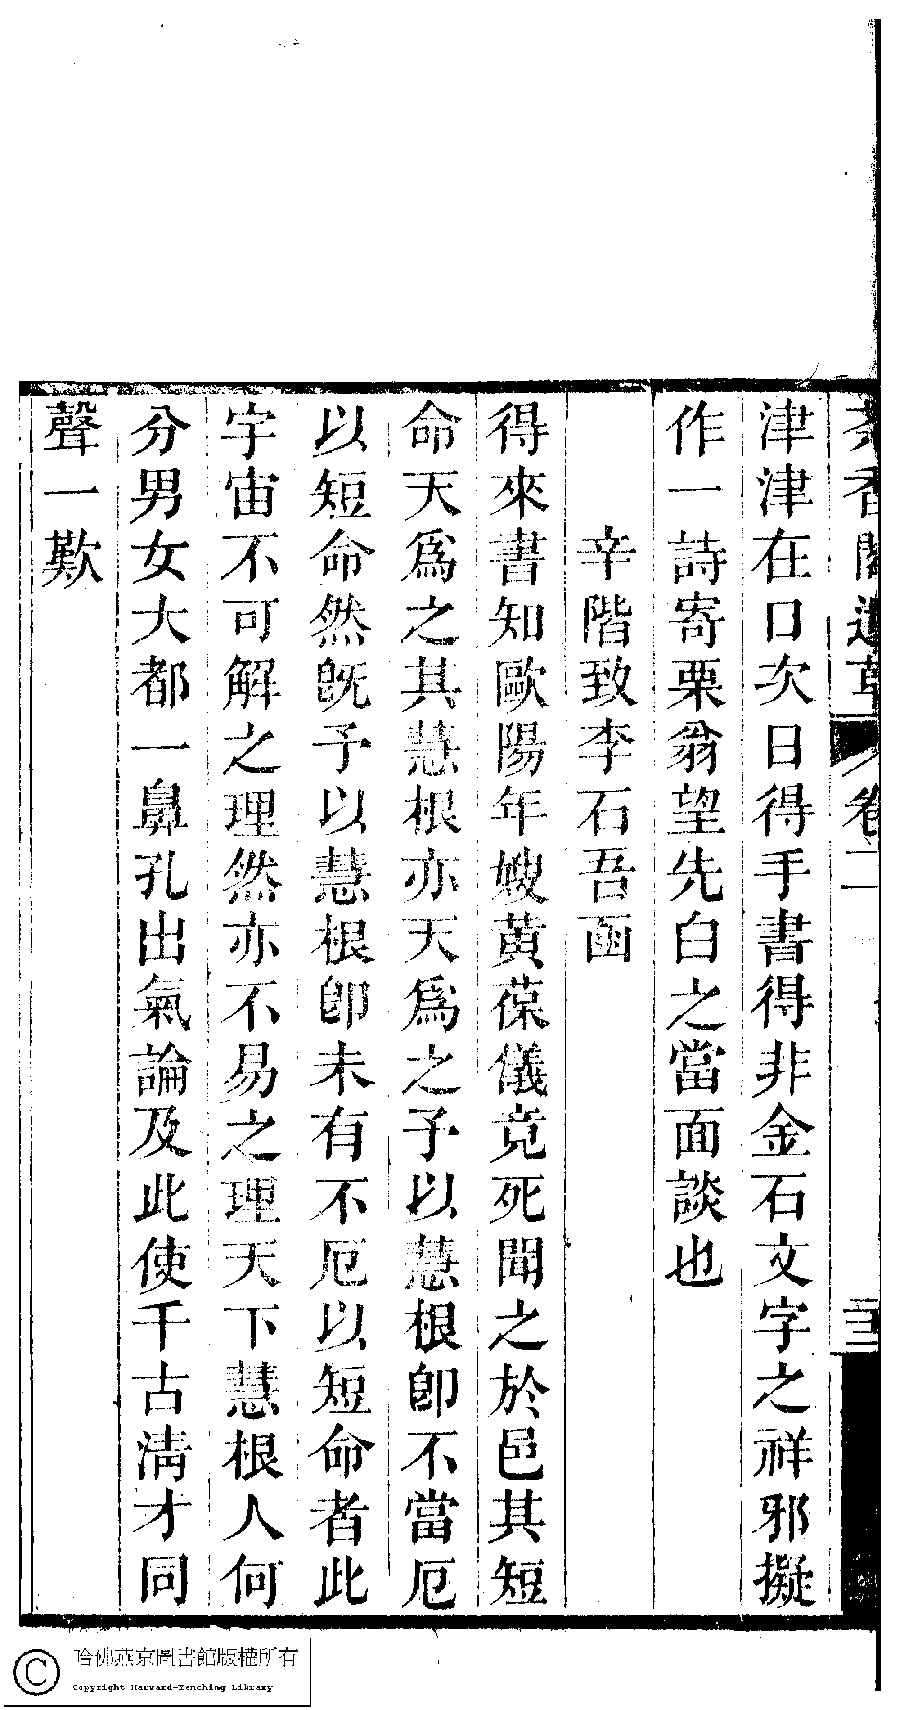 茶香閣遺草 卷二
津津在口次日得手書得非金石文字之祥邪擬
作一詩寄栗翁望先白之當面談也
辛階致李石吾函
得來書知歐陽年嫂黃葆儀竟死聞之於邑其短
命天爲之其慧根亦天爲之予以慧根卽不當厄
以短命然旣予以慧根卽未有不厄以短命者此
宇宙不可解之理然亦不易之理天下慧根人何
分男女大都一鼻孔出氣論及此使千古淸才同
聲一歎
哈佛燕京圖書館版權所有
Copyright Harvard-Yenching Library